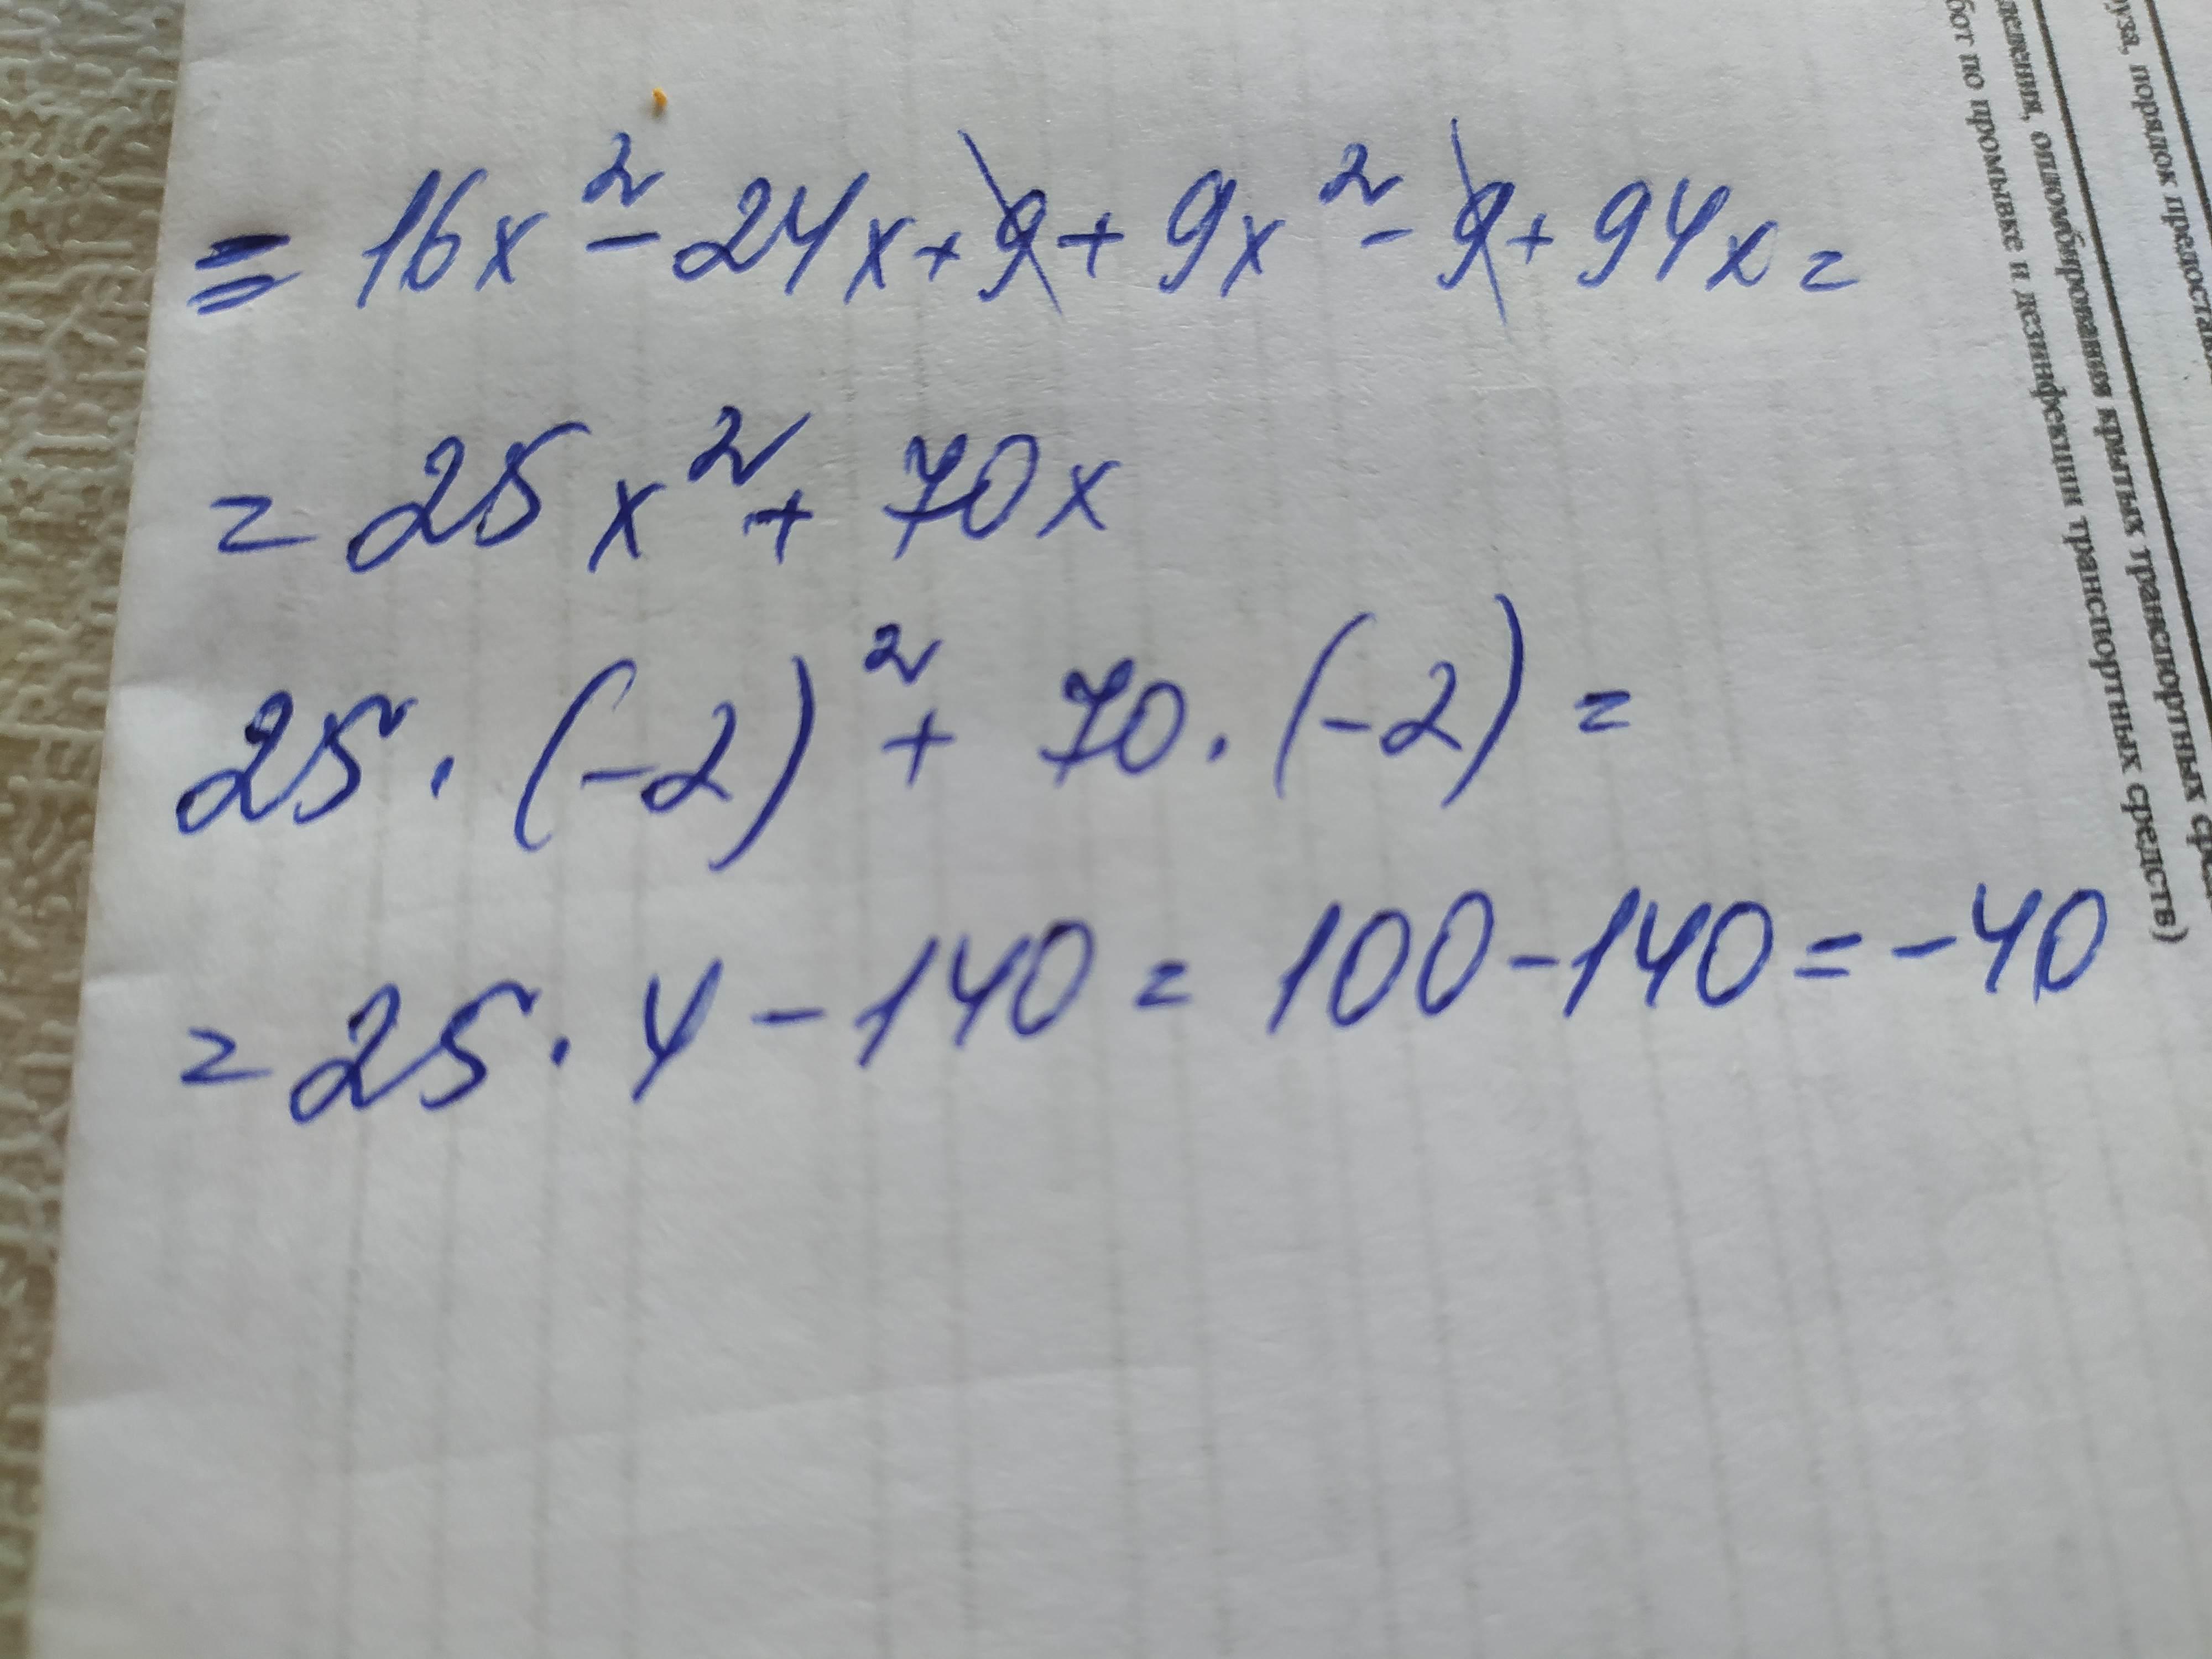 = 16x² - 24x + 9 + 9x² - 9 + 94x =
= 25x² + 70x
25 · (-2)² + 70 · (-2) =
= 25 · 4 - 140 = 100 - 140 = -40
порядок
опломбирования крытых транспортных
бот по промывке и дезинфекции транспортных средств)